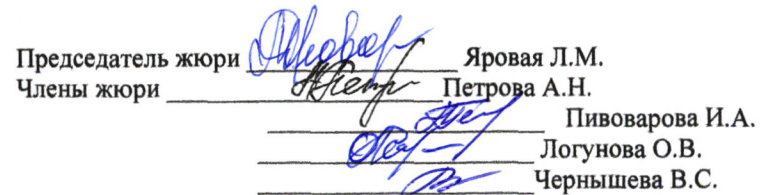 Председатель жюри Яровая Л.М.
Члены жюри Петрова А.Н.
Пивоварова И.А.
Логунова О.В.
Чернышева В.С.